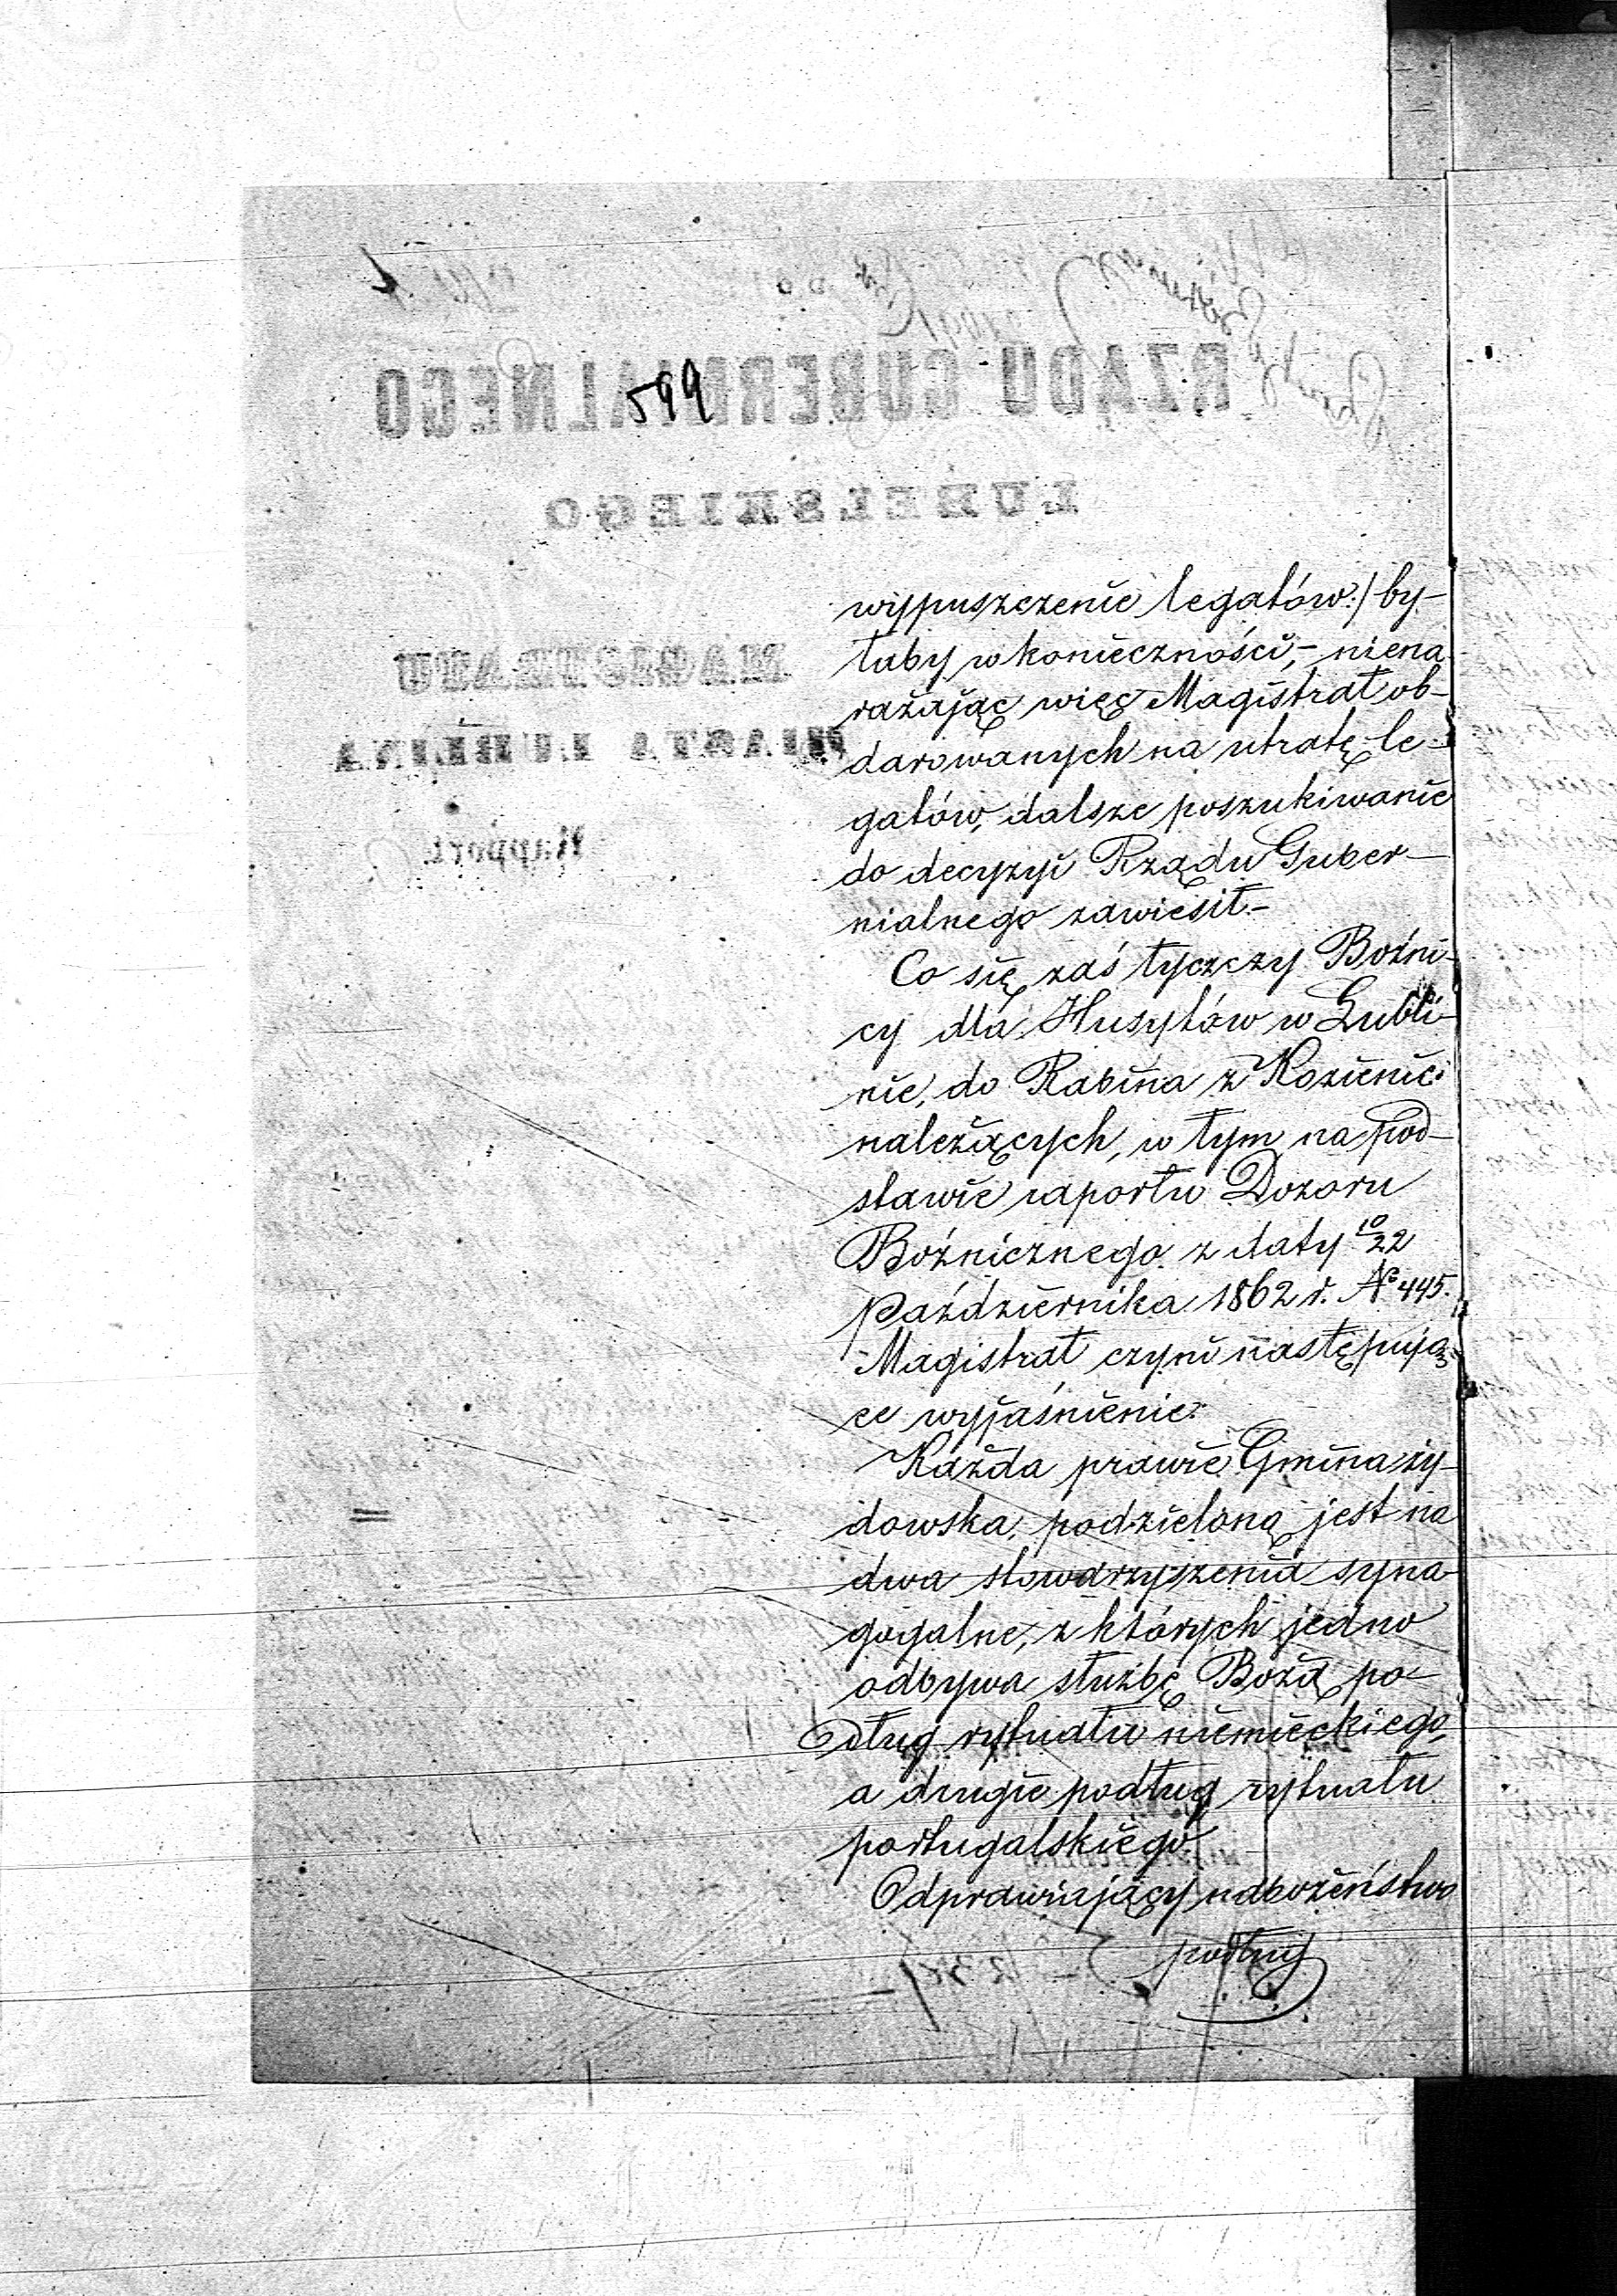 599
wypuszczenie legatów:/ by-
łaby w konieczności,- niena
rażając więc Magistrat ob-
darowanych na utratę le-
gatów, dalsze poszukiwanie
do decyzyi Rządu Guber-
nialnego zawiesił.-
Co się zaś tyczczy Boźni-
cy dla Husytów w Lubli-
nie, do Rabina z Kozienic
należących, w tym na pod-
stawie raportu Dozoru
Boźnicznego z daty 10/22
Października 1862 r. No 445.
Magistrat czyni następują-
ce wyjaśnienie:
Każda prawie Gmina ży-
dowska, podzieloną jest na
dwa stowarzyszenia syna-
gogalne, z których jedno
odbywa służbę Bożą po-
dług rytuału niemieckiego,
a drugie podług rytuału
portugalskiego.
Odprawiający nabożeństwo